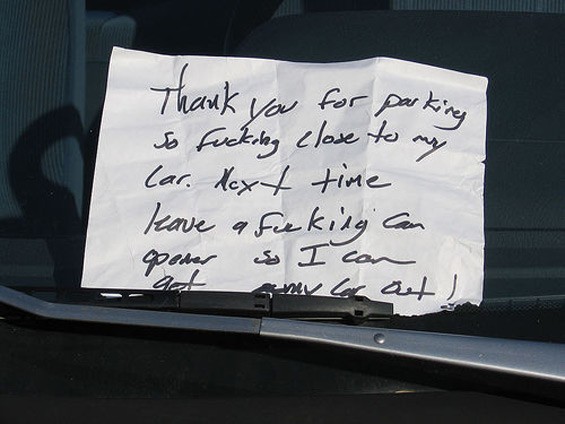 Thank you for parking
so fucking close to my
car. Next time
leave a fucking can
opener so I can
get my car out!